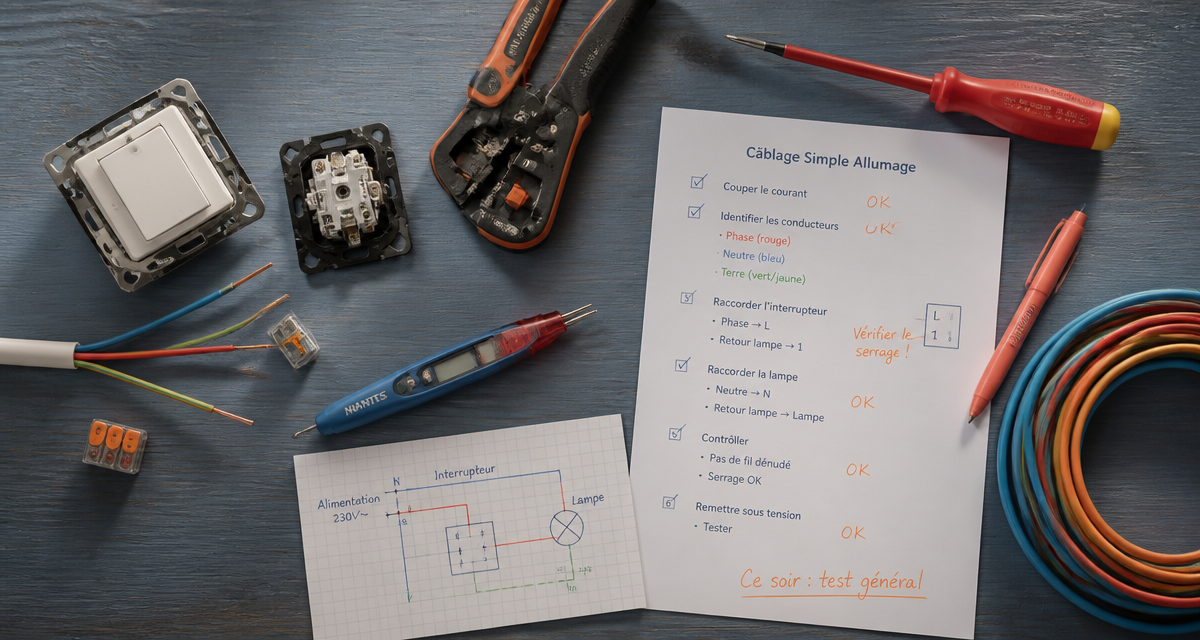 Câblage Simple Allumage
Couper le courant OK
Identifier les conducteurs OK
• Phase (rouge)
• Neutre (bleu)
• Terre (vert/jaune)
Raccorder l'interrupteur
• Phase → L
• Retour lampe → 1
Vérifier le
serrage !
L
1
Raccorder la lampe
• Neutre → N
• Retour lampe → Lampe
OK
Contrôller
• Pas de fil dénudé
• Serrage OK
OK
6 Remettre sous tension
• Tester
OK
Ce soir : test général
N
Interrupteur
Alimentation
230V~
Lampe